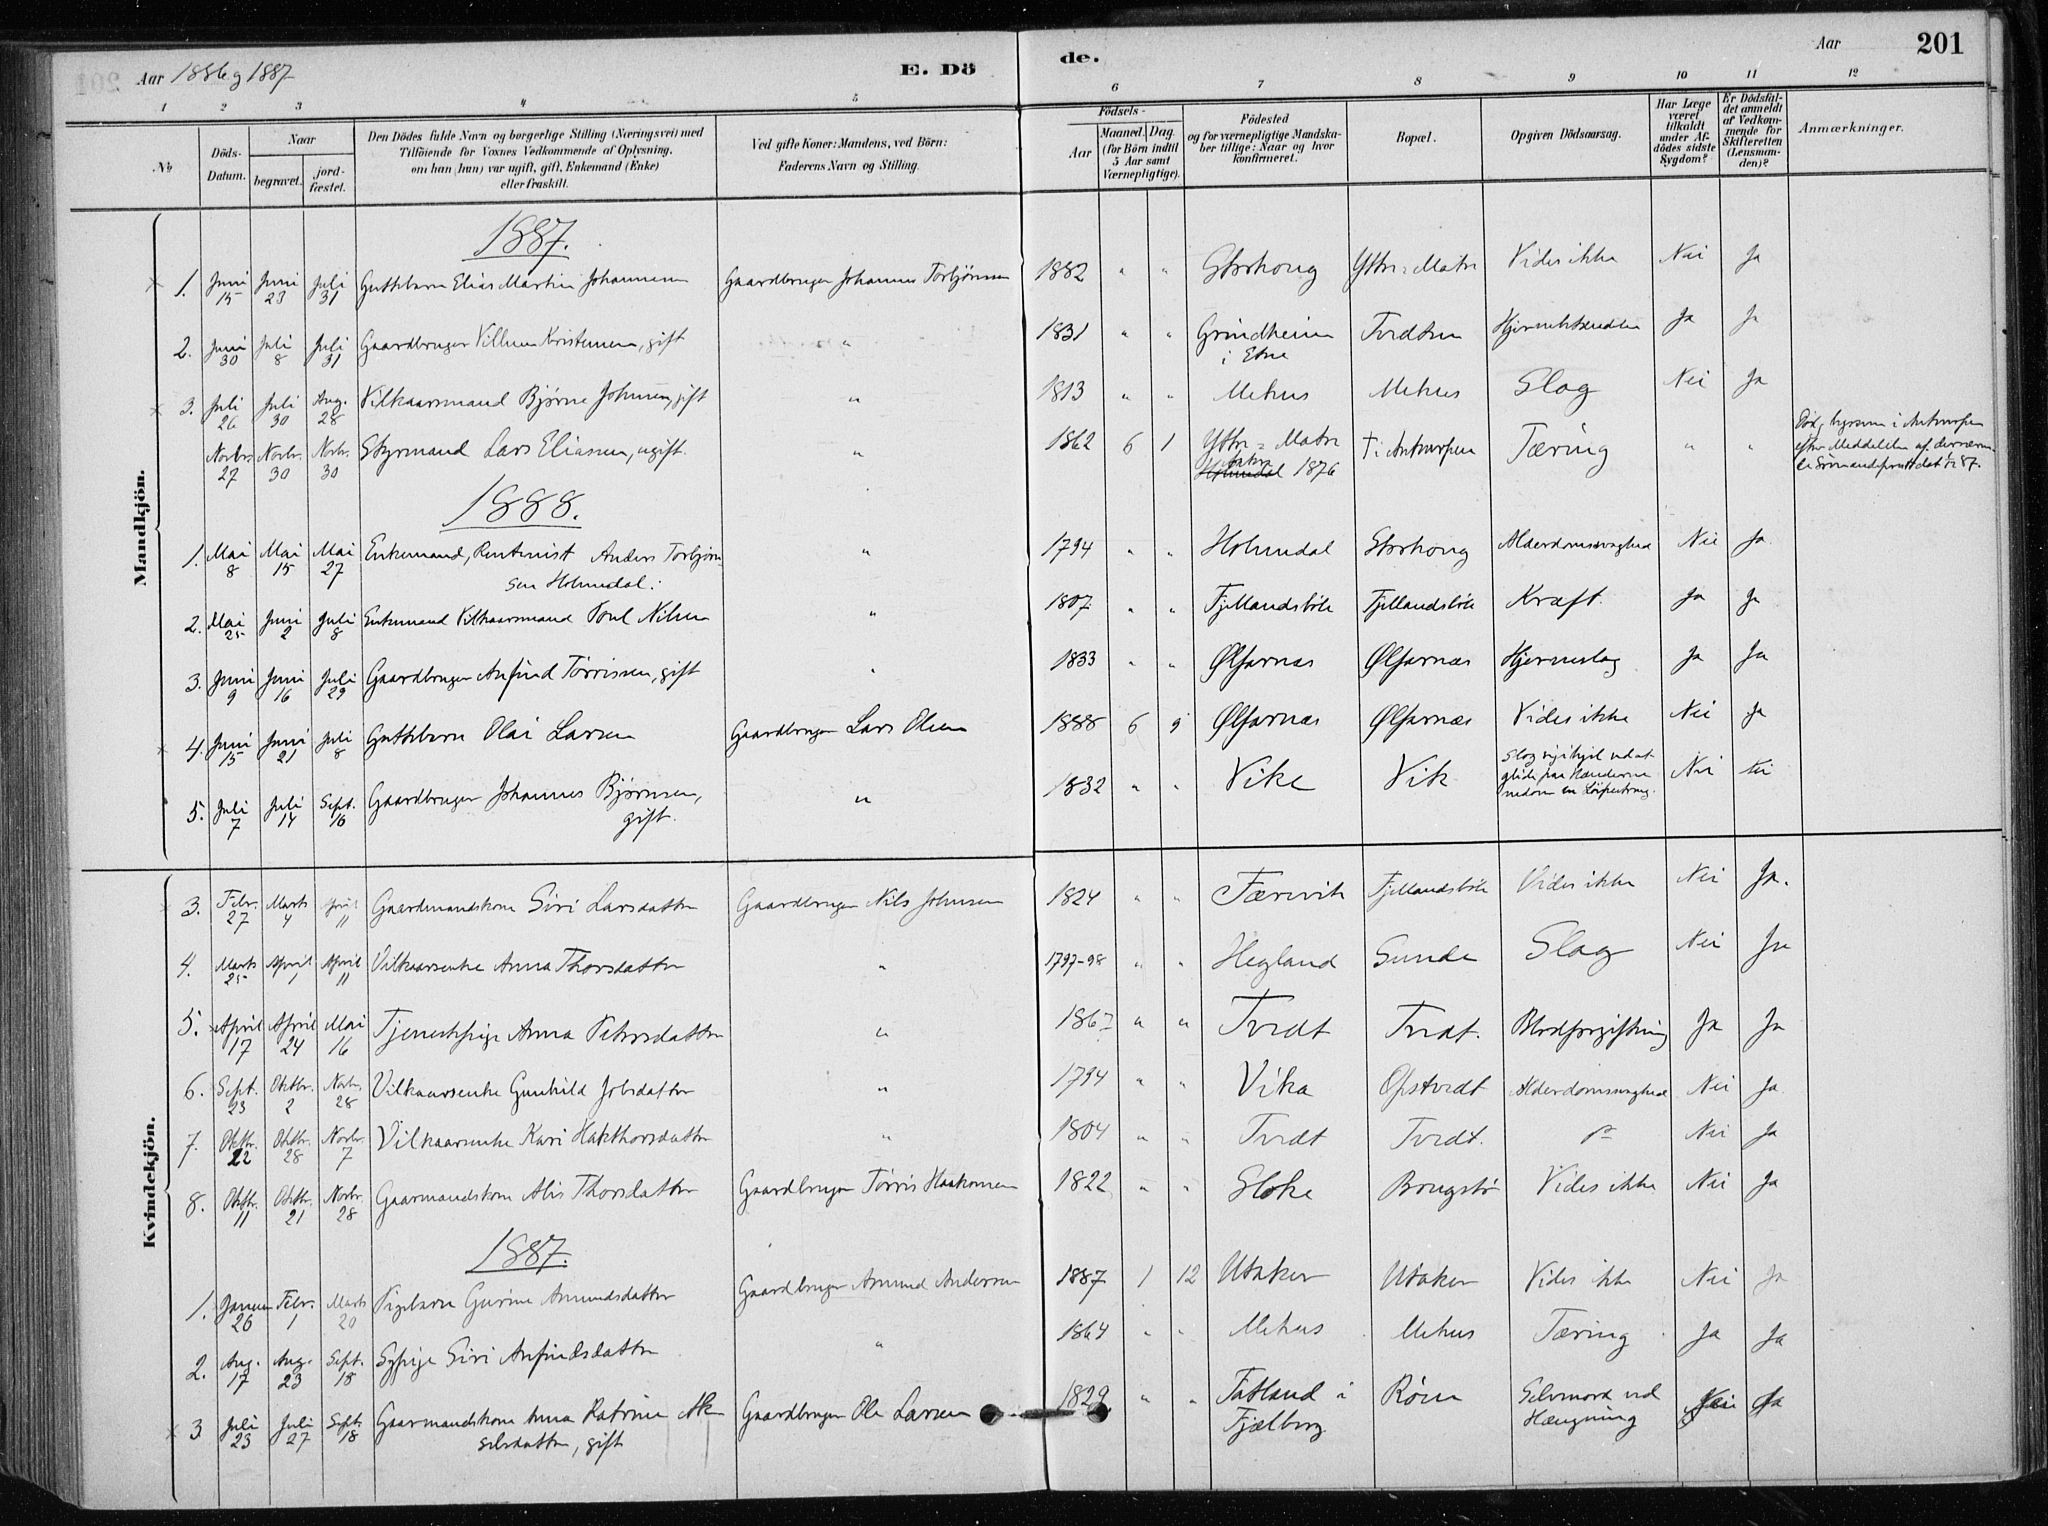 Aar 1886 og 1887
E. Dö
de.
Aar
201
1 2 3 4 5 6 7 8 9 10 11 12
No
Döds-Datum.
Naar
begravet.
jord-fæstet.
Den Dödes fulde Navn og borgerlige Stilling (Næringsvei) med
Tilföiende for Voxnes Vedkommende af Oplysning,
om han (hun) var ugift, gift, Enkemand (Enke)
eller fraskilt.
Ved gifte Koner: Mandens, ved Börn:
Faderens Navn og Stilling.
Födsels-
Aar
Maaned. Dag.
(for Börn indtil
5 Aar samt
Værnepligtige).
Födested
og for værnepligtige Mandska-
ber tillige: Naar og hvor
konfirmeret.
Bopæl.
Opgiven Dödsaarsag.
Har Læge
været
tilkaldt
under Af-
dödes sidste
Sygdom?
Er Dödsfal-
det anmeldt
af Vedkom-
mende for
Skifteretten
(Lensman-
den)?
Anmærkninger.
Mandkjön.
1887.
1. Juni 15 Juni 23 Juli 31 Guttebarn Elias Martin Johannesen Gaardbruger Johannes Torbjørnsen 1882 " " Storhoug Yttre Matre Vides ikke Nei Ja
2. Juni 30 Juli 8 Juli 31 Gaardbruger Villum Kristensen, gift " 1831 " " Grindheim i Etne Tvedten Ja Ja
3. Juli 26 Juli 30 Aug. 28 Vilkaarsmand Bjørne Johnsen, gift " 1813 " " Mehus Mehus Slag Nei Ja
Novbr. 27 Novbr. 30 Novbr. 30 Styrmand Lars Eliassen, ugift. " 1862 6 1 Yttre Matre 1876 † i Antwerpen Tæring " " Död, begraven i Antwerpen
efter Meddelelse af derværen-
de Sömandsprest dat 1/12 87.
1888.
1. Mai 8 Mai 15 Mai 27 Enkemand, Rentenist Anders Torbjørn-
sen Holmedal. " 1794 " " Holmedal Storhoug Alderdomssvaghed Nei Ja.
2. Mai 25 Juni 2 Juli 8 Enkemand Vilkaarsmand Poul Nilsen " 1807. " " Fjellandsböle Fjellandsböle Kræft. Ja Ja
3. Juni 9 Juni 16 Juli 29 Gaardbruger Anfind Tørrissen, gift " 1833 " " Ølfarnæs Ølfarnæs Hjerneslag Ja Ja
4. Juni 15 Juni 21 Juli 8 Guttebarn Olai Larsen Gaardbruger Lars Olsen 1888 6 9 Ølfarnæs Ølfarnæs Vides ikke Nei Ja
5. Juli 7 Juli 14 Sept. 16 Gaardbruger Johannes Bjørnsen,
gift. " 1832 " " Vike Vik Slog sig ihjel ved at
glide paa
nedom en Nei Nei
Kvindekjön.
3. Febr. 27 Marts 4 April 11 Gaardmandskone Siri Larsdatter Gaardbruger Nils Johnsen 1824 " " Færevik Fjellandsböle Vides ikke Nei Ja.
4. Marts 25 April 1 April 11 Vilkaarsenke Anna Thorsdatter " 1797-98 " " Hegland Sunde Slag Nei Ja
5. April 17 April 24 Mai 16 Tjenestepige Anna Petersdatter " 1867 " " Tvedt Tvedt. Blodforgiftning Ja Ja
6. Sept. 23 Oktbr. 2 Novbr. 28 Vilkaarsenke Gunhild Jobsdatter " 1794 " " Vika Opstvedt Alderdomssvaghed Nei Ja
7. Oktbr. 22 Oktbr. 28 Novbr. 7 Vilkaarsenke Kari Hakthorsdatter " 1804 " " Tvedt Tvedt. Nei Ja
8. Oktbr. 11 Oktbr. 21 Novbr. 28 Gaarmandskone Alis Thorsdatter Gaardbruger Tørris Haakonsen 1822 " " Sloke Vides ikke Nei Ja
1887.
1. Januar 26 Febr. 1 Marts 20 Pigebarn Gurine Amundsdatter Gaardbruger Amund Andersen 1887 1 12 Utaker Utaker Vides ikke Nei Ja
2. Aug. 17 Aug. 23 Sept. 18 Sypige Siri Anfindsdatter " 1864 " " Mehus Mehus Tæring Ja Ja
3 Juli 23 Juli 27 Sept. 18 Gaarmandskone Anna Katrine Ak-
selsdatter, gift Gaardbruger Ole Larsen 1829 " " Tatland i
Fjælberg Selvmord ved
Hængning Nei Ja